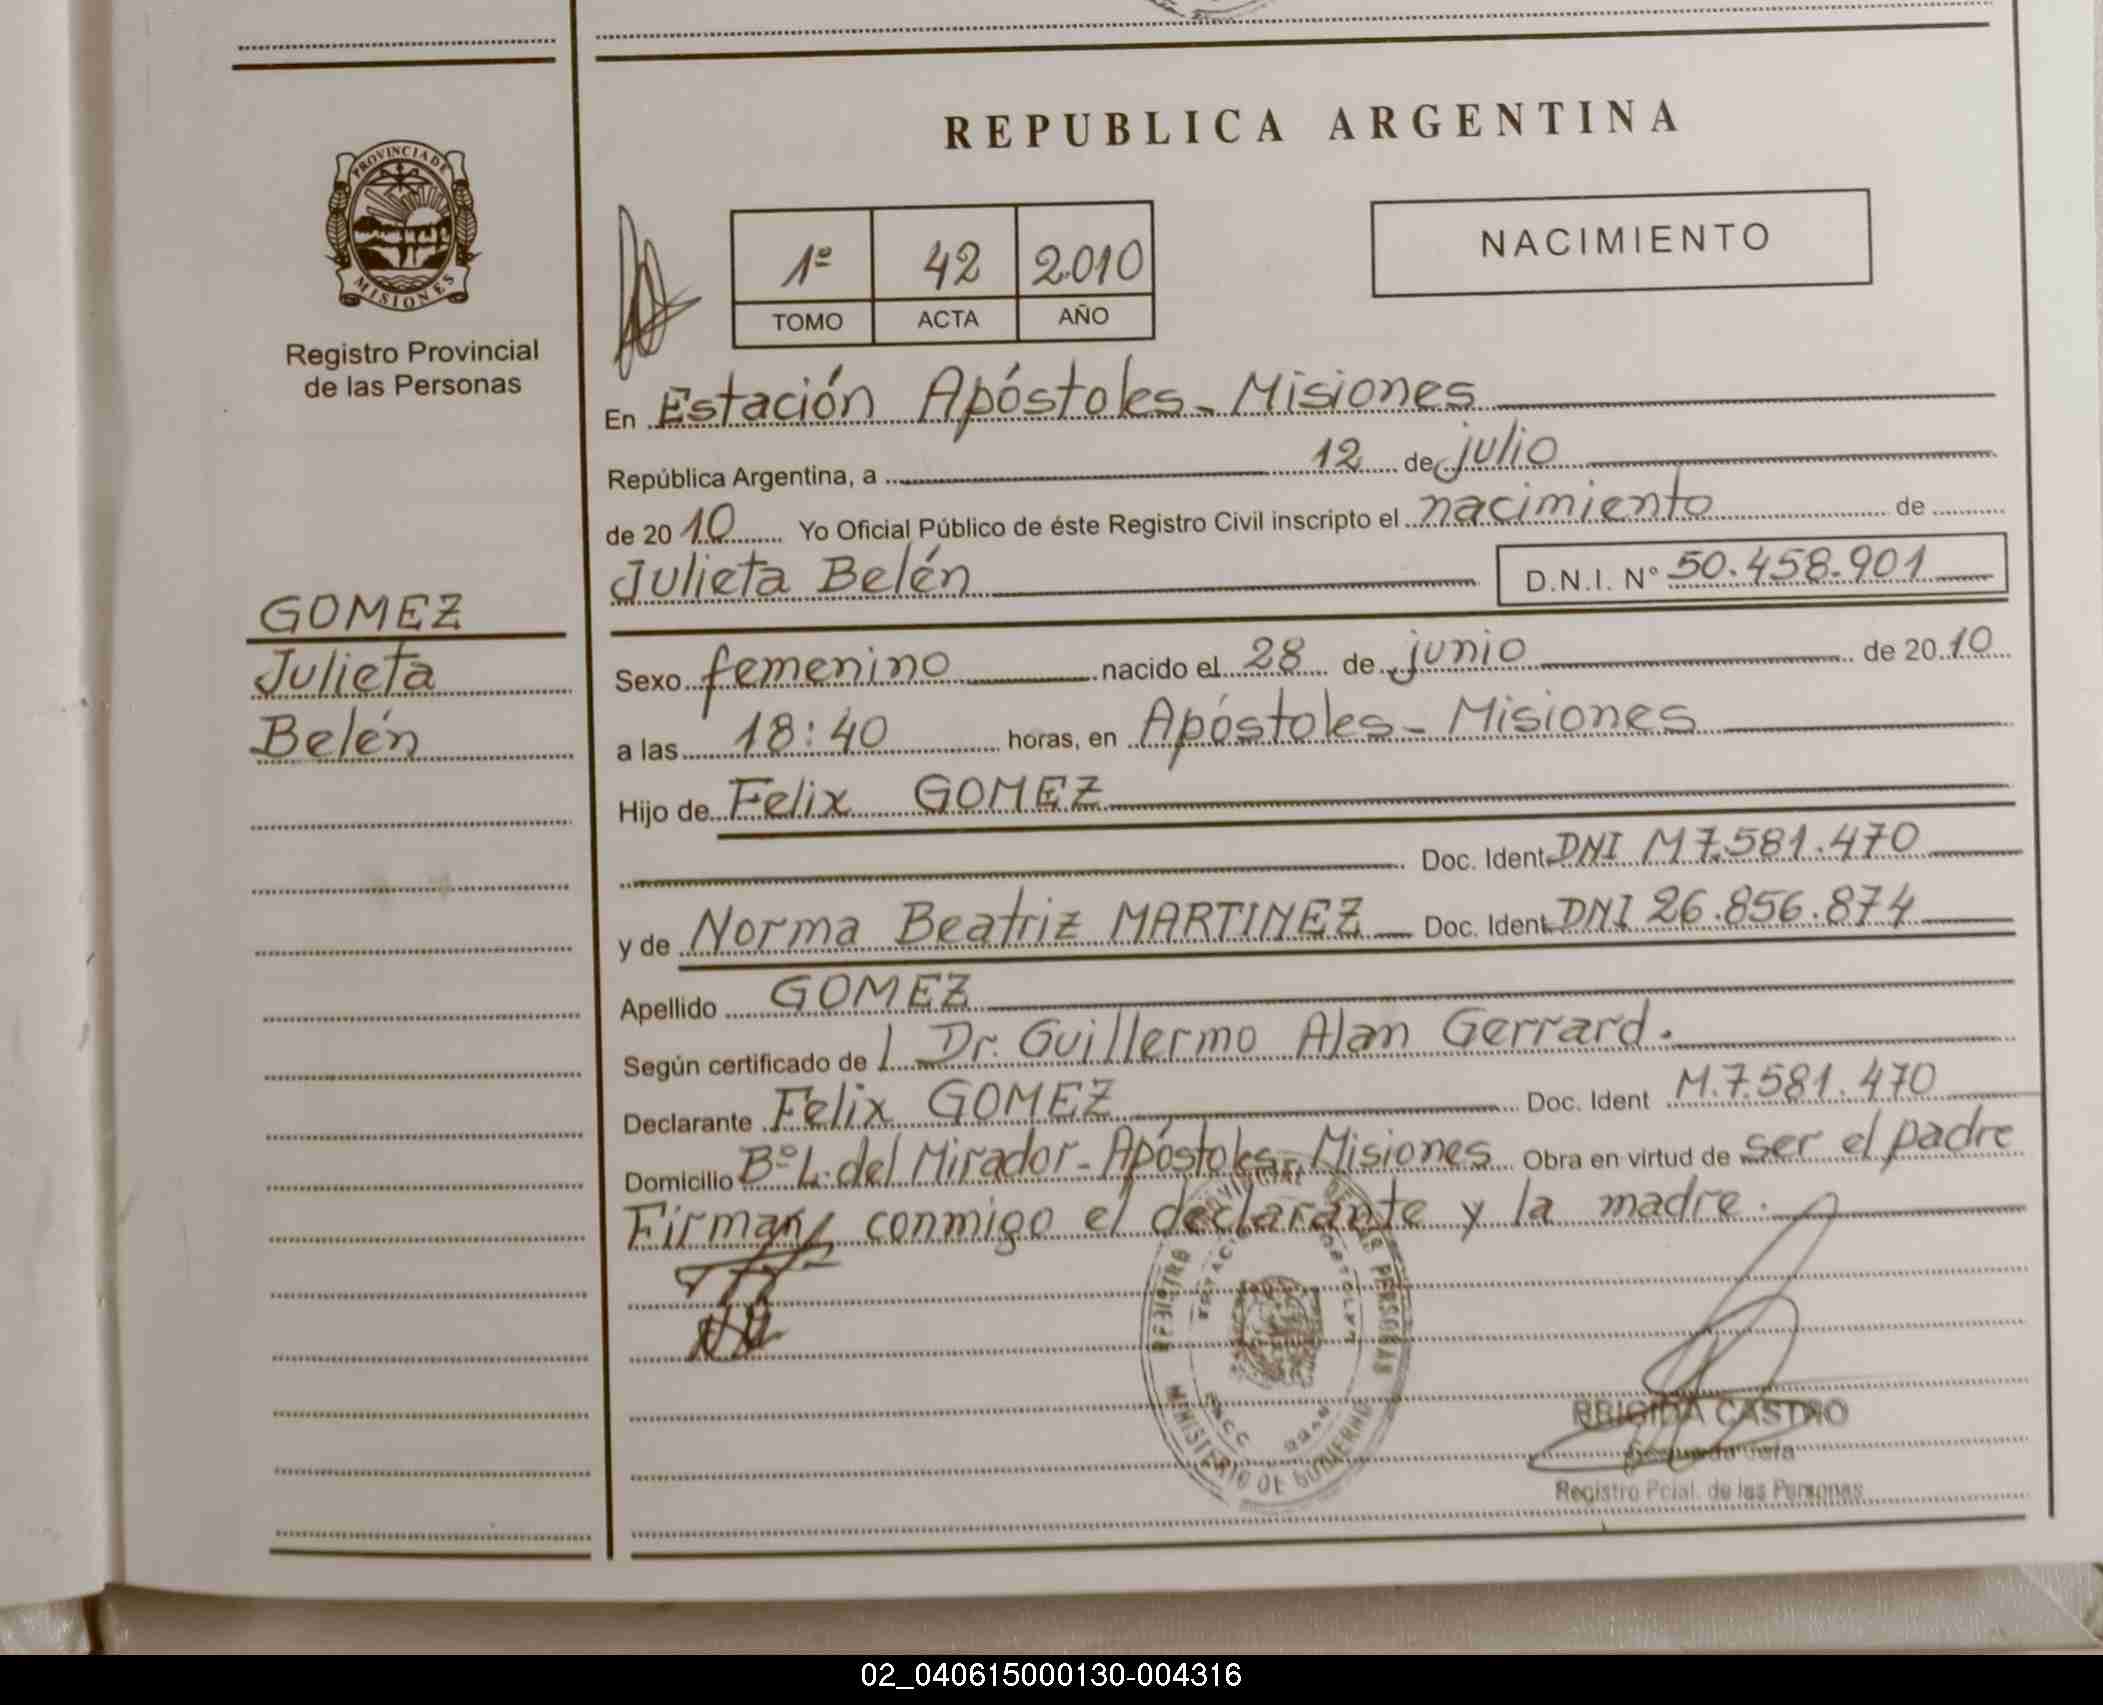 REPUBLICA ARGENTINA
PROVINCIA DE
MISIONES
Registro Provincial
de las Personas
1º 42 2.010
TOMO ACTA AÑO
NACIMIENTO
En Estación Apóstoles - Misiones
República Argentina, a 12 de julio
de 20 10 Yo Oficial Público de éste Registro Civil inscripto el nacimiento de
Julieta Belén D.N.I. Nº 50.458.901
GOMEZ
Julieta
Belén
Sexo femenino nacido el 28 de junio de 20 10
a las 18:40 horas, en Apóstoles - Misiones
Hijo de Felix GOMEZ
Doc. Ident DNI M 7.581.470
y de Norma Beatriz MARTINEZ Doc. Ident DNI 26.856.874
Apellido GOMEZ
Según certificado de Dr. Guillermo Alan Gerrard.
Declarante Felix GOMEZ Doc. Ident M.7.581.470
Domicilio Bº L. del Mirador - Apóstoles - Misiones Obra en virtud de ser el padre
Firman conmigo el declarante y la madre.
REGISTRO PROVINCIAL DE LAS PERSONAS
MINISTERIO DE GOBIERNO
BRIGIDA CASTRO
Registro Pcial. de las Personas
02_040615000130-004316